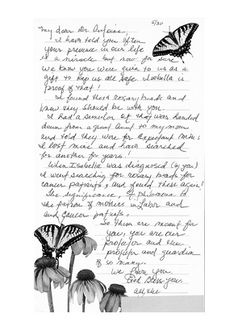 5/21
My dear Dr.
I have told you often
your presence in our life
is a miracle but now for sure
we know you were given to us as a
gift to keep us all safe. Isabella is
proof of that!
I found these rosary beads and
know they should be with you.
I had a similar set they was handed
down from a great Aunt to my mom
and told they were for expectant moms.
I lost mine and have searched
for another for years!
When Isabella was diagnosed (by you)
I went searching for rosary beads for
cancer patients and found these again!
the patron of mothers in labor and
and cancer patients.
So these are meant for
you, you are our
protector and the
protector and guardian
of so many.
We love you,
God bless you